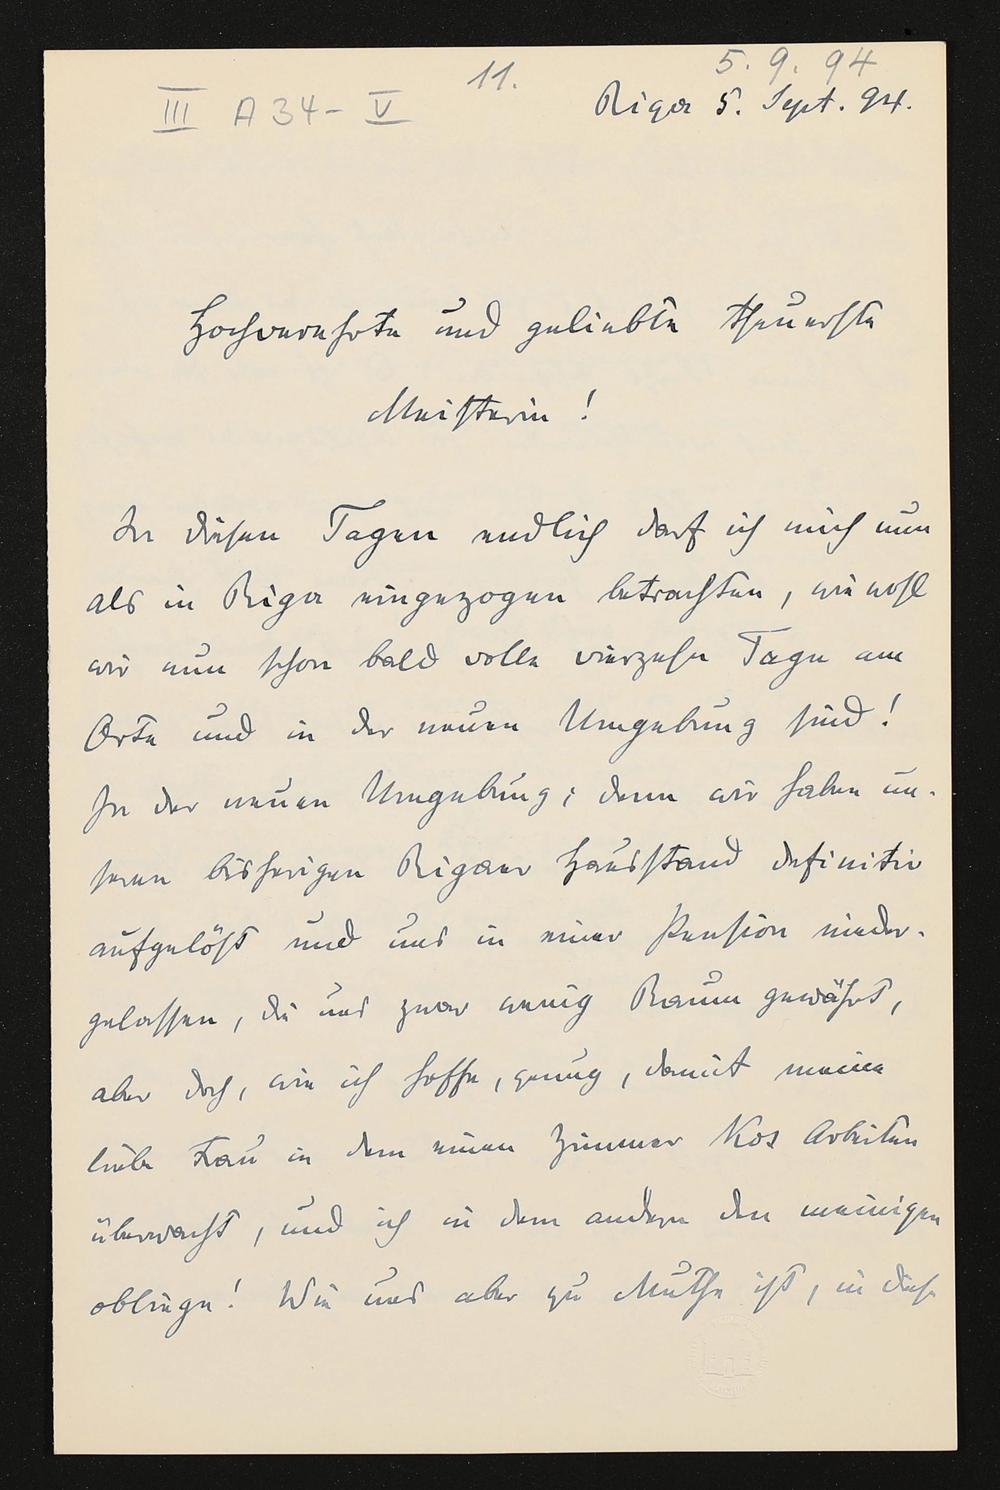 11.
5. 9. 94
III A 34 - V
Riga 5. Sept. 94.
Hochverehrte und geliebte theuerste
Meisterin!
In diesen Tagen endlich darf ich mich nun
als in Riga eingezogen betrachten, wiewohl
wir nun schon bald volle vierzehn Tage am
Orte und in der neuen Umgebung sind!
In der neuen Umgebung; denn wir haben un-
seren bisherigen Rigaer Hausstand definitiv
aufgelöst und uns in einer Pension nieder-
gelassen, die uns zwar wenig Raum gewährt,
aber doch, wie ich hoffe, genug, damit meine
liebe Frau in dem einen Zimmer Kos Arbeiten
überwacht, und ich in dem andern den meinigen
obliege! Wie uns aber zu Muthe ist, in diese